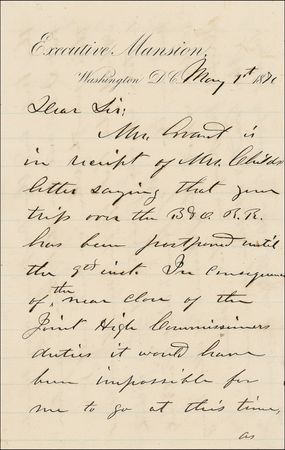 Executive Mansion,
Washington D.C. May 1st 187
Dear Sir;
Mrs. Grant is
in receipt of Mrs. Childs
letter saying that your
trip over the B & O R.R.
has been postponed until
the inst. In consequence
of the near close of the
Joint High Commissioners
duties it would have
been impossible for
me to go at this time,
as